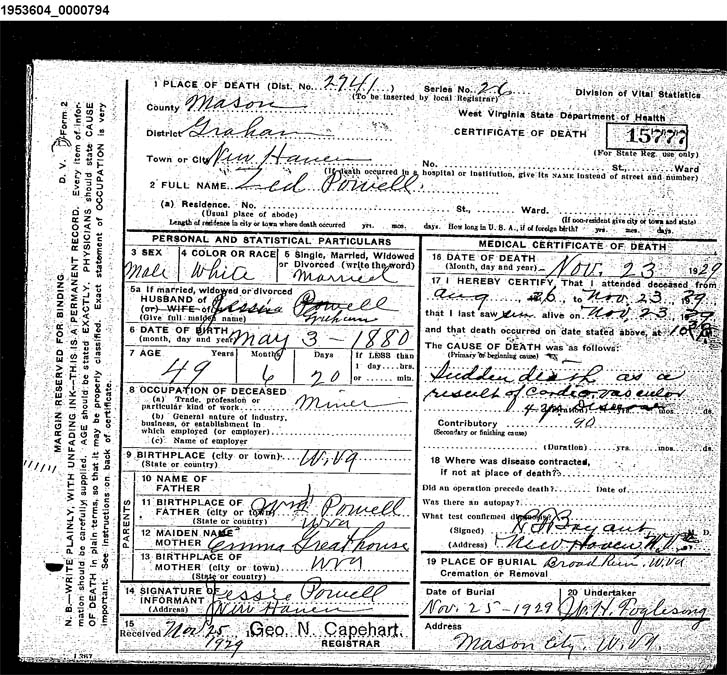 1953604_0000794
1 PLACE OF DEATH (Dist. No. 2741) Series No. 26 Division of Vital Statistics
(To be inserted by local Registrar)
County Mason West Virginia State Department of Health
District Graham CERTIFICATE OF DEATH 15777
(For State Reg. use only)
Town or City New Haven No. St., Ward
(If death occurred in a hospital or institution, give its NAME instead of street and number)
2 FULL NAME Zed Powell
(a) Residence. No. St., Ward.
(Usual place of abode) (If non-resident give city or town and state)
Length of residence in city or town where death occurred yrs. mos. days. How long in U. S. A., if of foreign birth? yrs. mos. days.
PERSONAL AND STATISTICAL PARTICULARS
3 SEX 4 COLOR OR RACE 5 Single, Married, Widowed
or Divorced (write the word)
Male White Married
5a If married, widowed or divorced
HUSBAND of Jessie Powell
(or) WIFE of
(Give full maiden name) Graham
6 DATE OF BIRTH
(month, day and year) May 3 - 1880
7 AGE Years Months Days If LESS than
1 day....hrs.
or .... min.
49 6 20
8 OCCUPATION OF DECEASED
(a) Trade, profession or
particular kind of work Miner
(b) General nature of industry,
business, or establishment in
which employed (or employer)
(c) Name of employer
9 BIRTHPLACE (city or town) W.Va
(State or country)
PARENTS
10 NAME OF
FATHER
11 BIRTHPLACE OF
FATHER (city or town) Wm Powell
(State or country) W Va
12 MAIDEN NAME
MOTHER Emma Greathouse
13 BIRTHPLACE OF
MOTHER (city or town) W Va
(State or country)
14 SIGNATURE OF
INFORMANT Jessie Powell
(Address) New Haven
15
Received Nov 25 1929 Geo. N. Capehart.
REGISTRAR
MEDICAL CERTIFICATE OF DEATH
16 DATE OF DEATH
(Month, day and year) Nov. 23 1929
17 I HEREBY CERTIFY, That I attended deceased from
Aug 26, to Nov. 23, 29.
that I last saw him alive on Nov. 23, 29
and that death occurred on date stated above, at
The CAUSE OF DEATH was as follows:
(Primary or beginning cause)
Sudden death as a
result of Cardio vascular
(Duration) yrs. mos. ds.
Contributory 90
(Secondary or finishing cause)
(Duration) yrs. mos. ds.
18 Where was disease contracted,
if not at place of death?
Did an operation precede death? Date of
Was there an autopsy?
What test confirmed diagnosis?
(Signed) Bryant M. D.
(Address) New Haven, W.Va
19 PLACE OF BURIAL Broad Run, W.Va
Cremation or Removal
Date of Burial 20 Undertaker
Nov. 25 - 1929 W. H. Foglesong
Address
Mason City, W.Va.
MARGIN RESERVED FOR BINDING D. V. Form 2
N. B.—WRITE PLAINLY, WITH UNFADING INK—THIS IS A PERMANENT RECORD. Every item of infor-
mation should be carefully supplied. AGE should be stated EXACTLY. PHYSICIANS should state CAUSE
OF DEATH in plain terms, so that it may be properly classified. Exact statement of OCCUPATION is very
important. See instructions on back of certificate.
1367